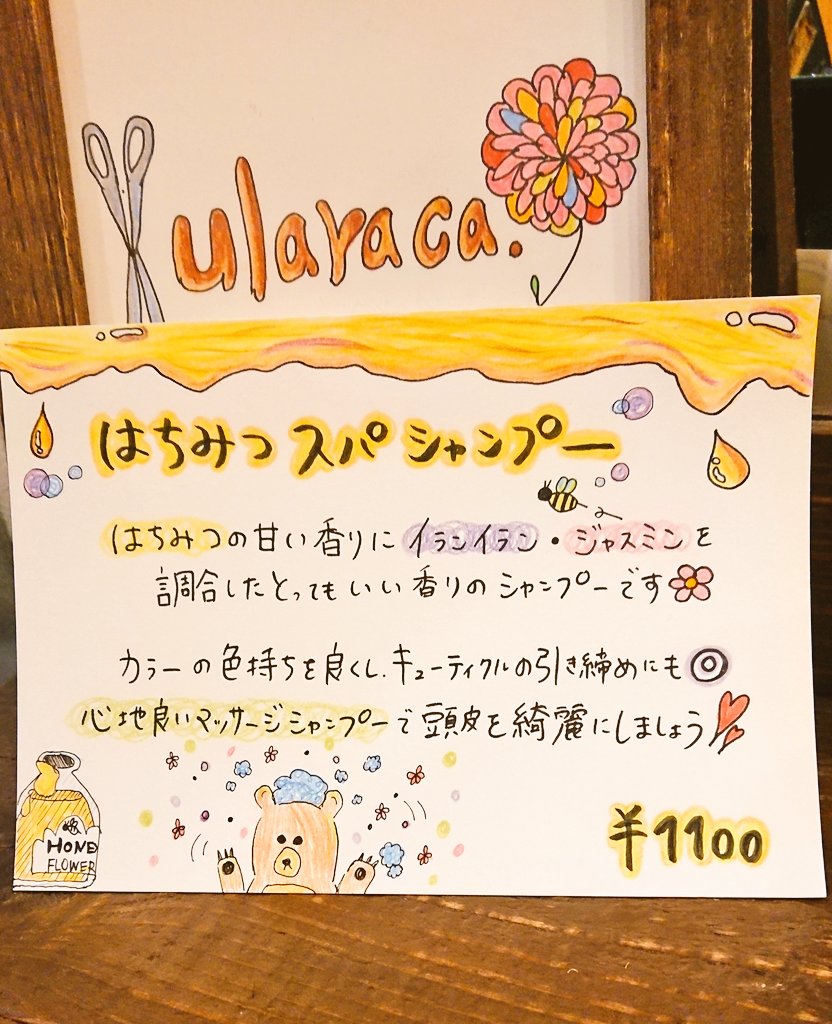 ularaca.
はちみつスパシャンプー
はちみつの甘い香りにイランイラン・ジャスミンを
調合したとってもいい香りのシャンプーです
カラーの色持ちを良くし、キューティクルの引き締めにも◎
心地良いマッサージシャンプーで頭皮を綺麗にしましょう
HONE
FLOWER
¥1100